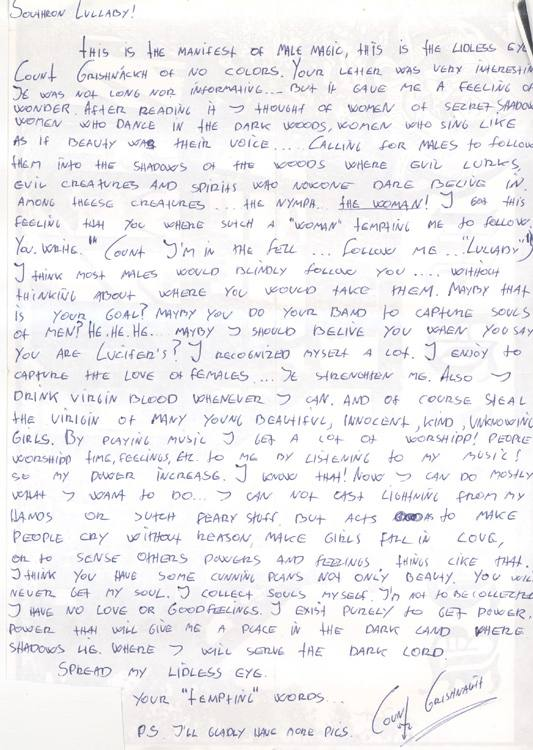 SOUTHRON LULLABY!
THIS IS THE MANIFEST OF MALE MAGIC, THIS IS THE LIDLESS EYE
COUNT GRISHNACKH OF NO COLORS. YOUR LETTER WAS VERY INTERESTIN
IT WAS NOT LONG NOR INFORMATING... BUT IT GAVE ME A FEELING OF
WONDER. AFTER READING IT I THOUGHT OF WOMEN OF SECRET SHADOW
WOMEN WHO DANCE IN THE DARK WOODS, WOMEN WHO SING LIKE
AS IF BEAUTY WAS THEIR VOICE.... CALLING FOR MALES TO FOLLOW
THEM INTO THE SHADOWS OF THE WOODS WHERE EVIL LURKS,
EVIL CREATURES AND SPIRITS WHO NOWONE DARE BELIVE IN.
AMONG THEESE CREATURES ... THE NYMPH... THE WOMAN! I GOT THIS
FEELING THAT YOU WHERE SUTCH A "WOMAN" TEMPTING ME TO FOLLOW
YOU. WRITE. "COUNT I'M IN THE FELL ... FOLLOW ME ..."LULLABY"
I THINK MOST MALES WOULD BLINDLY FOLLOW YOU .... WITHOUT
THINKING ABOUT WHERE YOU WOULD TAKE THEM. MAYBY THAT
IS YOUR GOAL? MAYBY YOU DO YOUR BAND TO CAPTURE SOULS
OF MEN? HE.HE.HE... MAYBY I SHOULD BELIVE YOU WHEN YOU SAY
YOU ARE LUCIFER'S? I RECOGNIZED MYSELF A LOT. I ENJOY TO
CAPTURE THE LOVE OF FEMALES.... IT STRENGHTEN ME. ALSO I
DRINK VIRGIN BLOOD WHENEVER I CAN. AND OF COURSE STEAL
THE VIRIGIN OF MANY YOUNG BEAUTIFUL, INNOCENT, KIND, UNKNOWING
GIRLS. BY PLAYING MUSIC I GET A LOT OF WORSHIPP! PEOPLE
WORSHIPP TIME, FEELINGS, ETC. TO ME BY LISTENING TO MY MUSIC!
SO MY POWER INCREASE. I KNOW THAT! NOW I CAN DO MOSTLY
WHAT I WANT TO DO... I CAN NOT CAST LIGHTNING FROM MY
HANDS OR SUTCH PEARY STUFF, BUT ACTS AS TO MAKE
PEOPLE CRY WITHOUT REASON, MAKE GIRLS FALL IN LOVE,
OR TO SENSE OTHERS POWERS AND FEELINGS. THINGS LIKE THAT.
I THINK YOU HAVE SOME CUNNING PLANS NOT ONLY BEAUTY. YOU WILL
NEVER GET MY SOUL. I COLLECT SOULS MYSELF. I'M NOT TO BE COLLECTED
I HAVE NO LOVE OR GOOD FEELINGS. I EXIST PURELY TO GET POWER.
POWER THAT WILL GIVE ME A PLACE IN THE DARK LAND WHERE
SHADOWS LIE. WHERE I WILL SERVE THE DARK LORD.
SPREAD MY LIDLESS EYE.
YOUR "TEMPTING" WORDS...
COUNT GRISHNACKH
P.S. I'LL GLADLY HAVE MORE PICS.